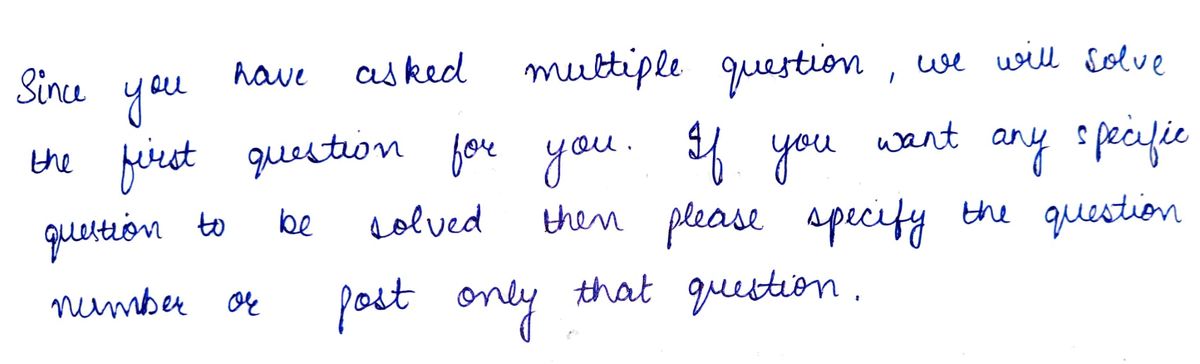 Since you have asked multiple question, we will solve
the first question for you. If you want any specific
question to be solved then please specify the question
number or post only that question.